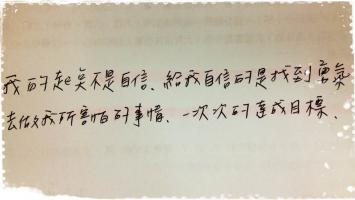 我的起點不是自信、給我自信的是找到勇氣
去做我所害怕的事情、一次次的達成目標、